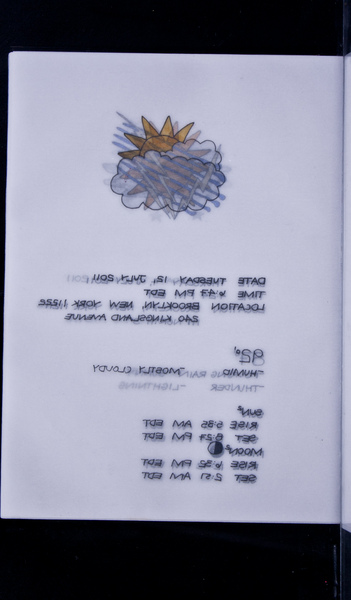 DATE TUESDAY 12, JULY 2011
TIME 6:47 PM EDT
LOCATION BROOKLYN, NEW YORK 11222
240 KINGSLAND AVENUE
82°
-HUMID -MOSTLY CLOUDY
-THUNDER -LIGHTNING
SUN
RISE 5:35 AM EDT
SET 8:27 PM EDT
MOON
RISE 6:32 PM EDT
SET 2:51 AM EDT